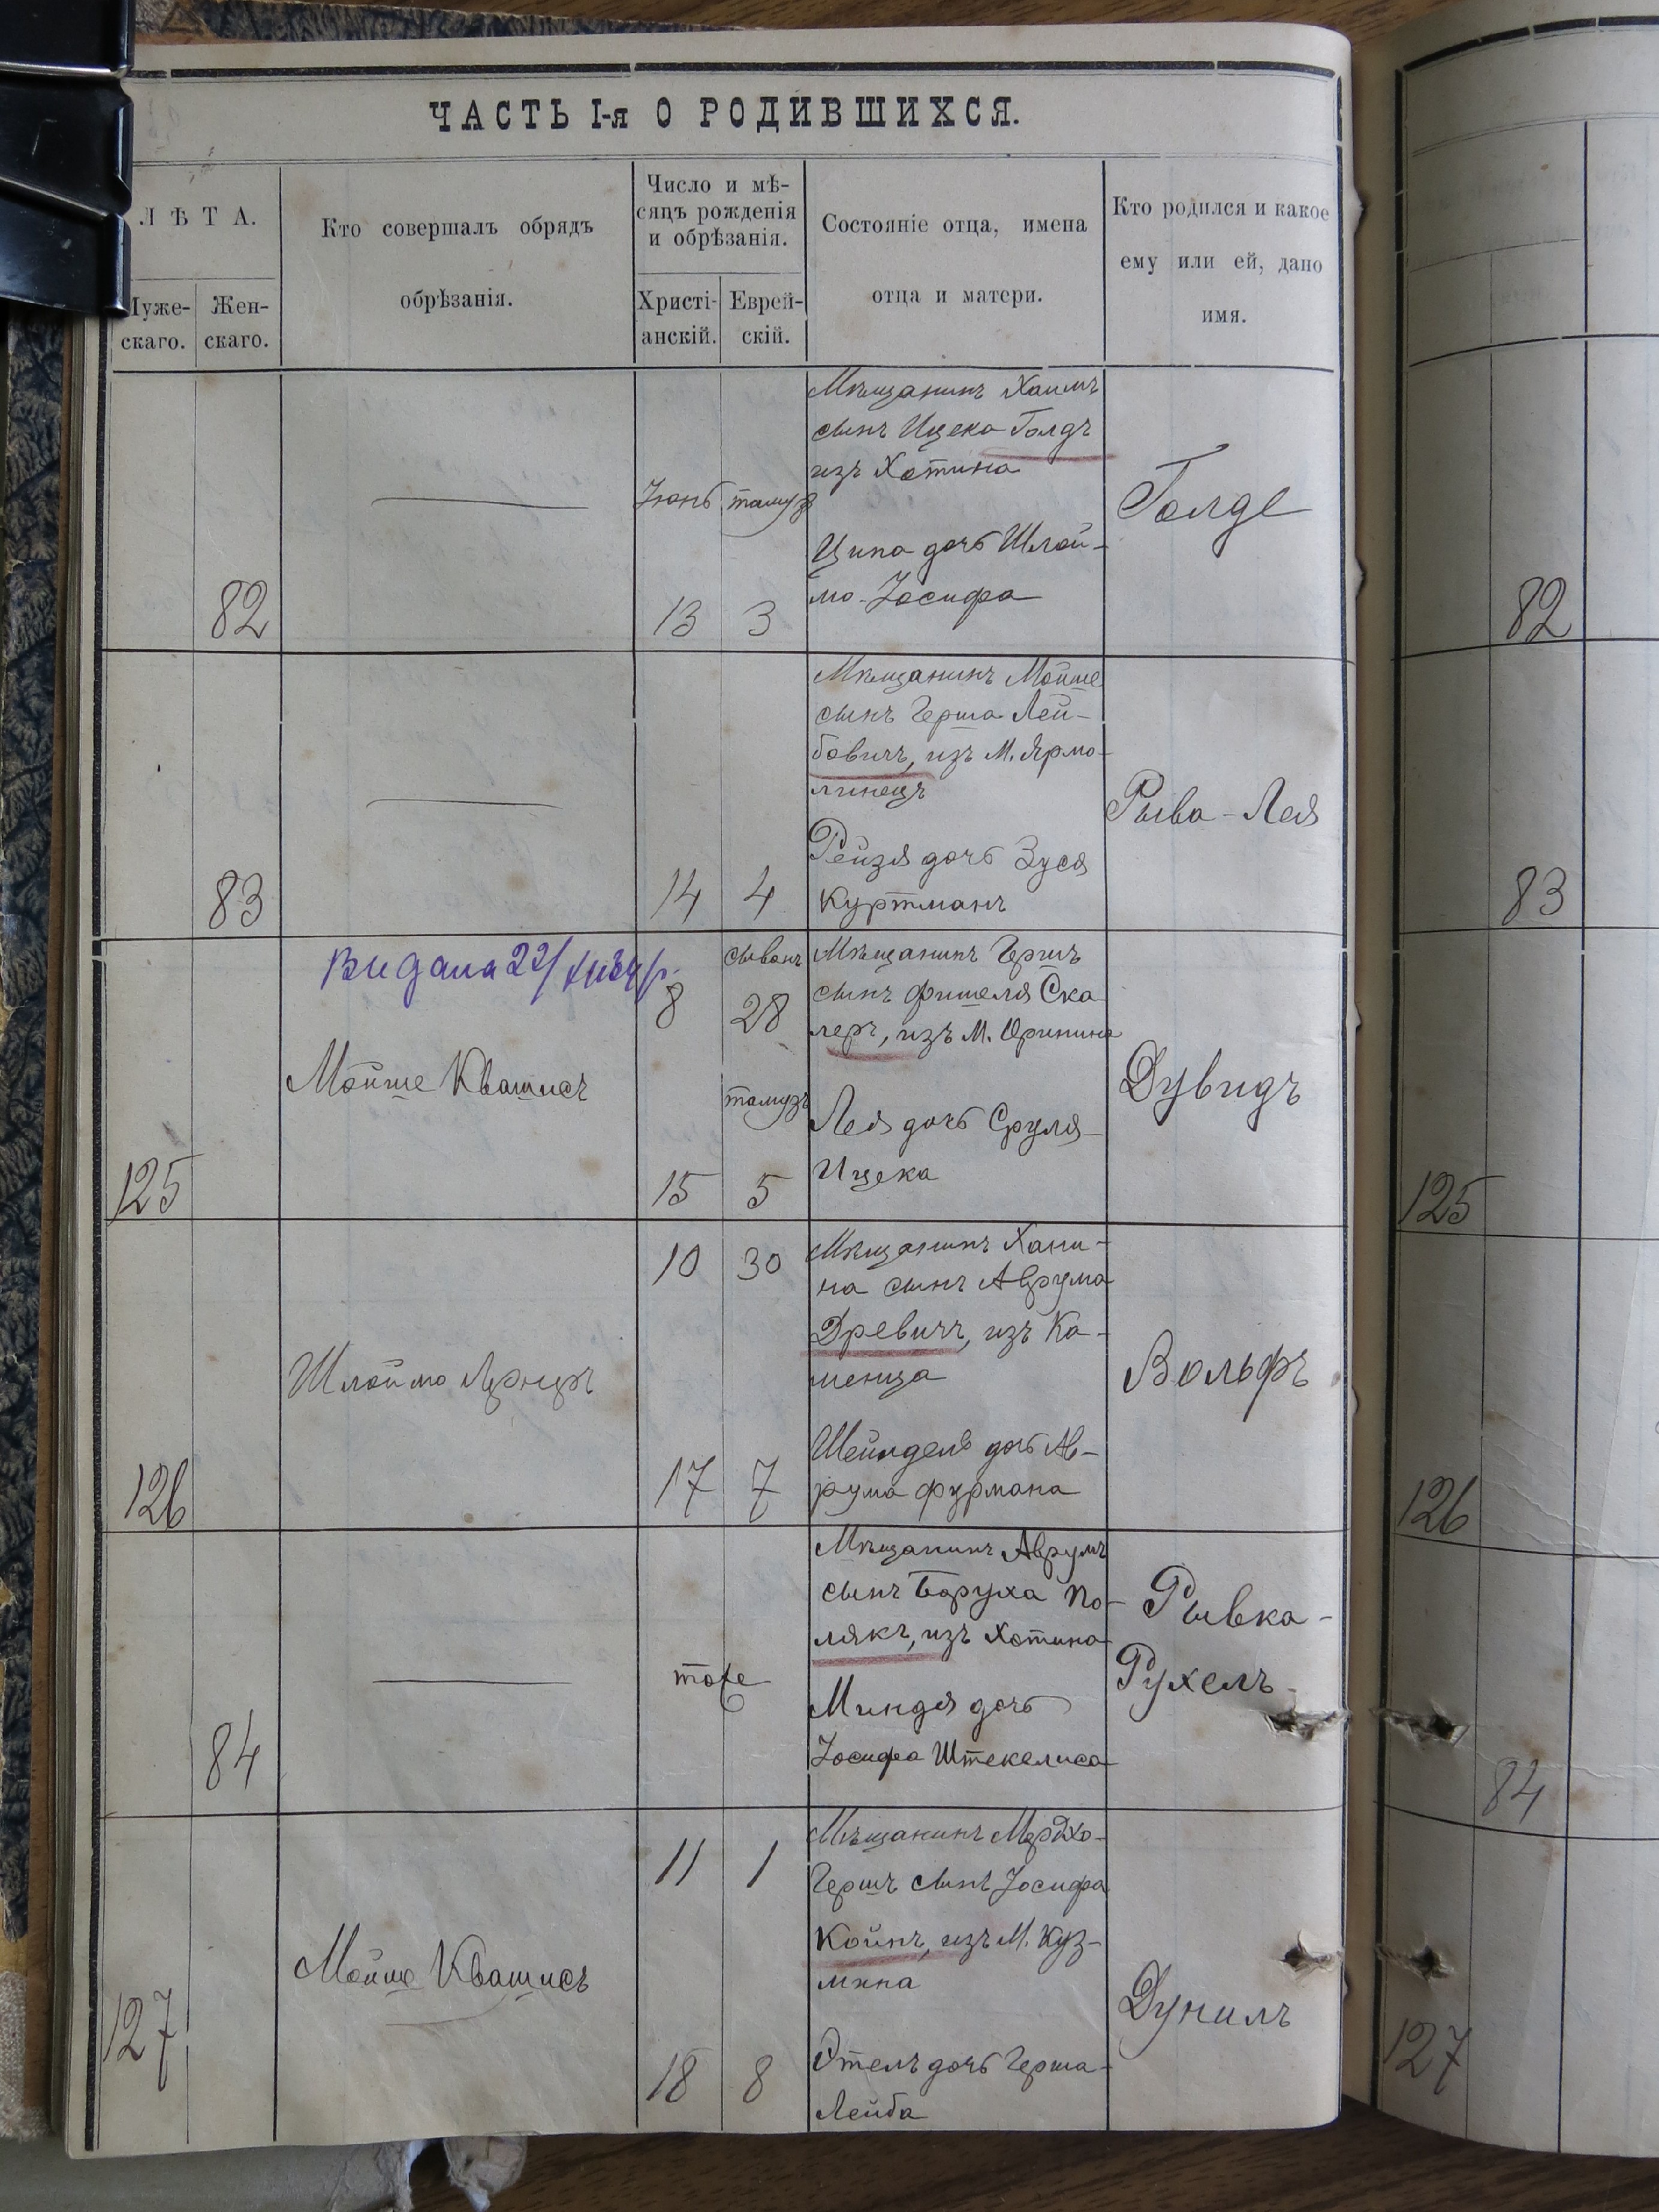 ЧАСТЬ I-я О РОДИВШИХСЯ.
ЛѢТА.
Муже-
скаго.
Жен-
скаго.
Кто совершалъ обрядъ
обрѣзанія.
Число и мѣ-
сяцъ рожденія
и обрѣзанія.
Христі-
анскій.
Еврей-
скій.
Состояніе отца, имена
отца и матери.
Кто родился и какое
ему или ей, дано
имя.
82
Іюнь
13
тамуз
3
Мѣщанинъ Хаимъ
сынъ Ицека Голдъ
изъ Хотина
Ципа дочь Шлой-
мо-Іосифа
Голде
82
83
14
4
Мѣщанинъ Мойше
сынъ Герша Лей-
бовичъ, изъ М. Ярмо-
линецъ
Рейзя дочь Зуся
Куртманъ
Рыва-Лея
83
125
Видана 22/
Мойше Квашисъ
8
15
сыванъ
28
тамузъ
5
Мѣщанинъ Гершъ
сынъ Фишеля Ска
леръ, изъ М. Оринина
Лея дочь Сруля-
Ицека
Дувидъ
125
126
Шлоймо
10
17
30
7
Мѣщанинъ Хани-
на сынъ Аврума
Древичъ, изъ Ка-
менца
Шейндель дочь Ав-
рума Фурмана
Вольфъ
126
84
тоже
Мѣщанинъ Аврумъ
сынъ Боруха По-
лякъ, изъ Хотина
Миндя дочь
Іосифа Штекелиса
Рывка-
Рухелъ
84
127
Мойше Квашисъ
11
18
1
8
Мѣщанинъ Мордхо-
Гершъ сынъ Іосифа
Койнъ, изъ М. Куз-
мина
Этелъ дочь Герша-
Лейба
Дунилъ
127